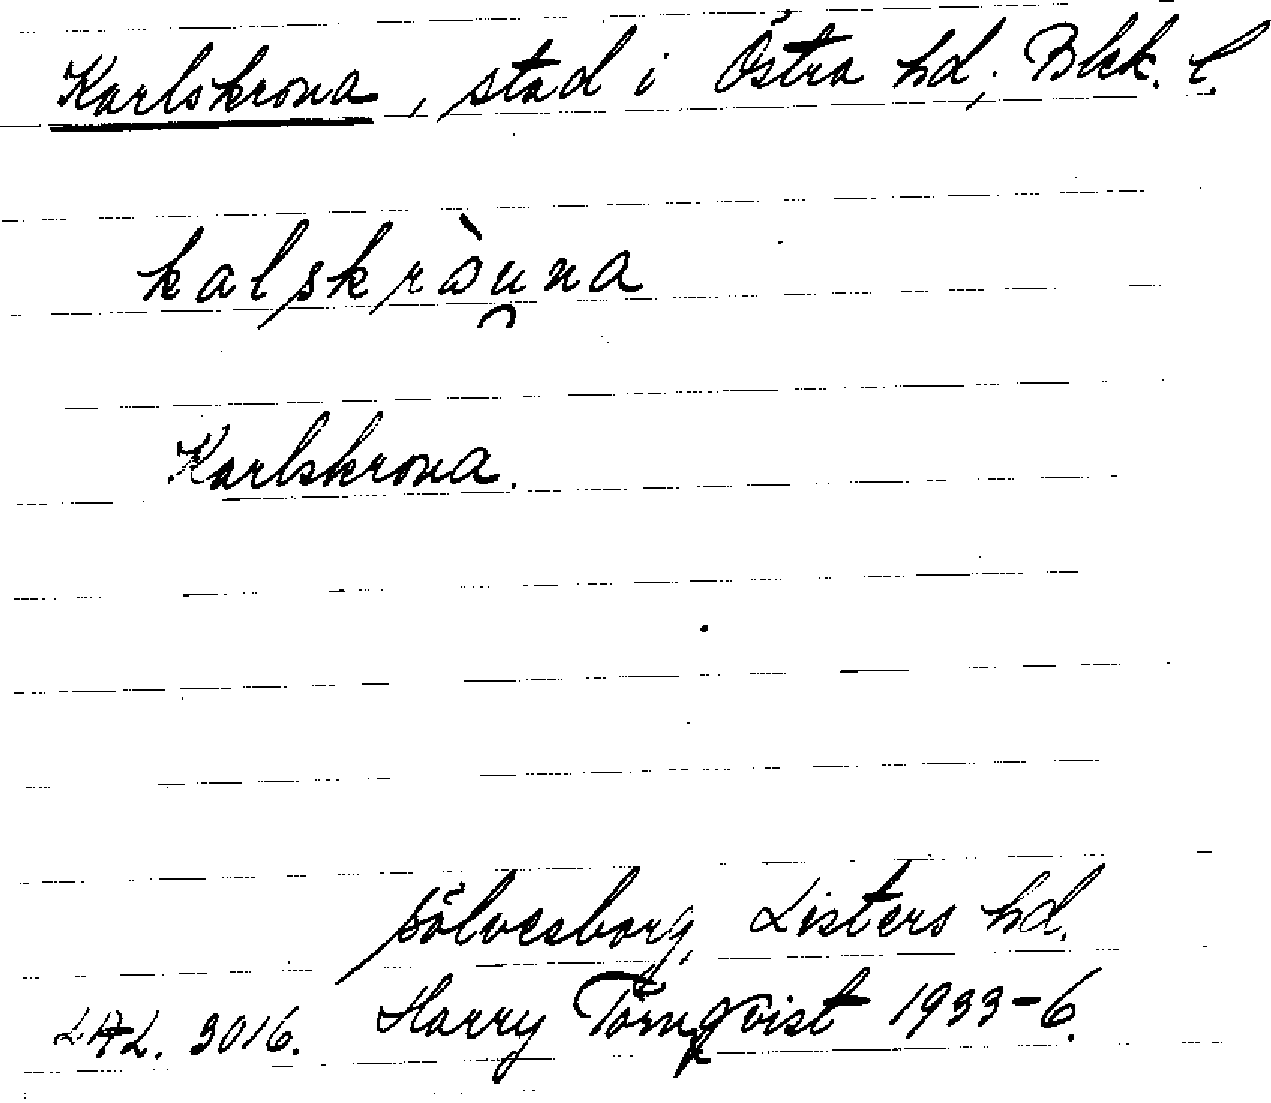 Karlskrona, stad i Östra hd, Blek. l.
kalskrɷ̀u̯na
Karlskrona.
Sölvesborg, Listers hd.
LAL. 3016. Harry Törnqvist 1933-6.